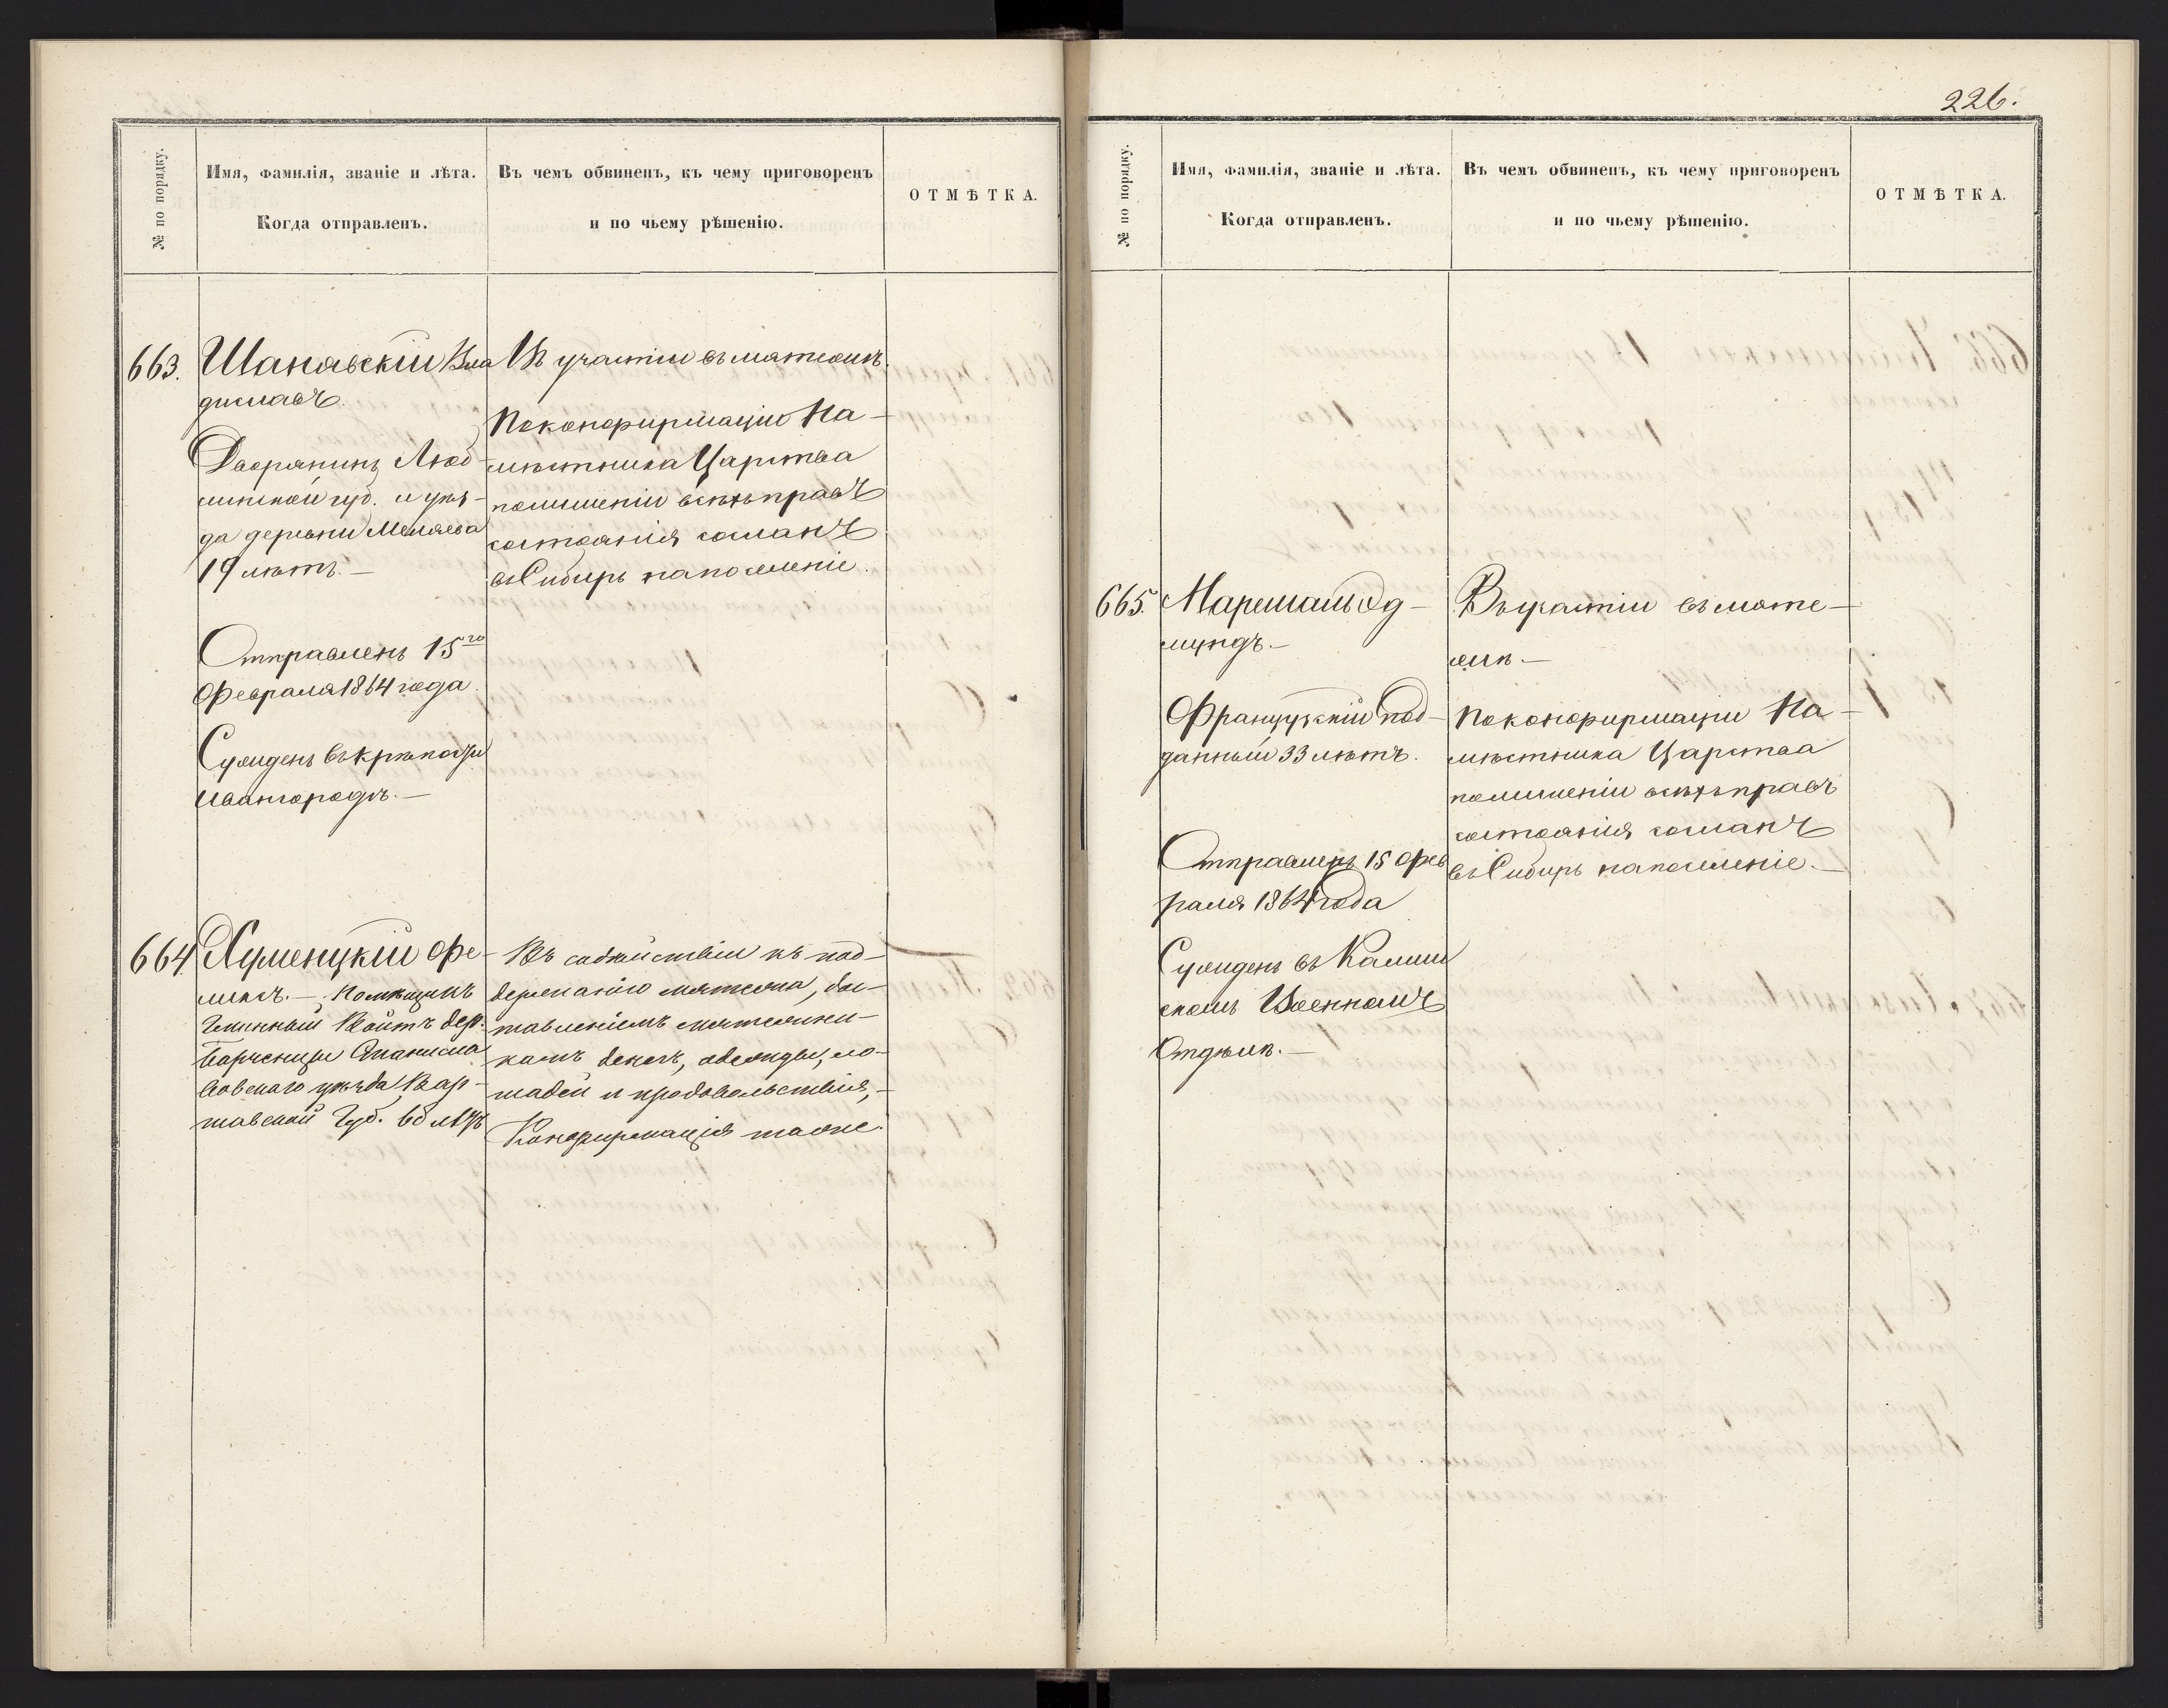 № по порядку.
Имя, фамилія, званіе и лѣта.
Когда отправленъ.
Въ чемъ обвиненъ, къ чему приговоренъ
и по чьему рѣшенію.
ОТМѢТКА.
663.
Шанявскій Вла
диславъ.
Дворянинъ Люб-
линской губ. и уѣз-
да деревни
19 лѣтъ.—
Отправленъ 15го
Февраля 1864 года.
Сужденъ въ крѣпости
Ивангородѣ.—
Въ участіи въ мятежѣ.
По конфирмаціи На-
мѣстника Царства
по лишеніи всѣхъ правъ
состоянія сосланъ
въ Сибирь на поселеніе.
664
Хуменцкій Фе-
ликсъ.— Помѣщикъ
Гминный Войтъ дер.
Варшав-
шавской Губ.
Въ содѣйствіи къ под-
держанію мятежа, дос-
тавленіемъ мятежни-
камъ денегъ, одежды, ло-
шадей и продовольствія,-
Конфирмація таже.
226.
№ по порядку.
Имя, фамилія, званіе и лѣта.
Когда отправленъ.
Въ чемъ обвиненъ, къ чему приговоренъ
и по чьему рѣшенію.
ОТМѢТКА.
665.
Марешаль Эд-
мундъ.—
Французскій под-
данный 33 лѣтъ.
Отправленъ 15 Фев
раля 1864 года
Сужденъ въ Калиш
скомъ Военномъ
Отдѣлѣ.—
Въ участіи въ мяте-
жѣ.—
По конфирмаціи На-
мѣстника Царства
по лишеніи всѣхъ правъ
состоянія сосланъ
въ Сибирь на поселеніе.—